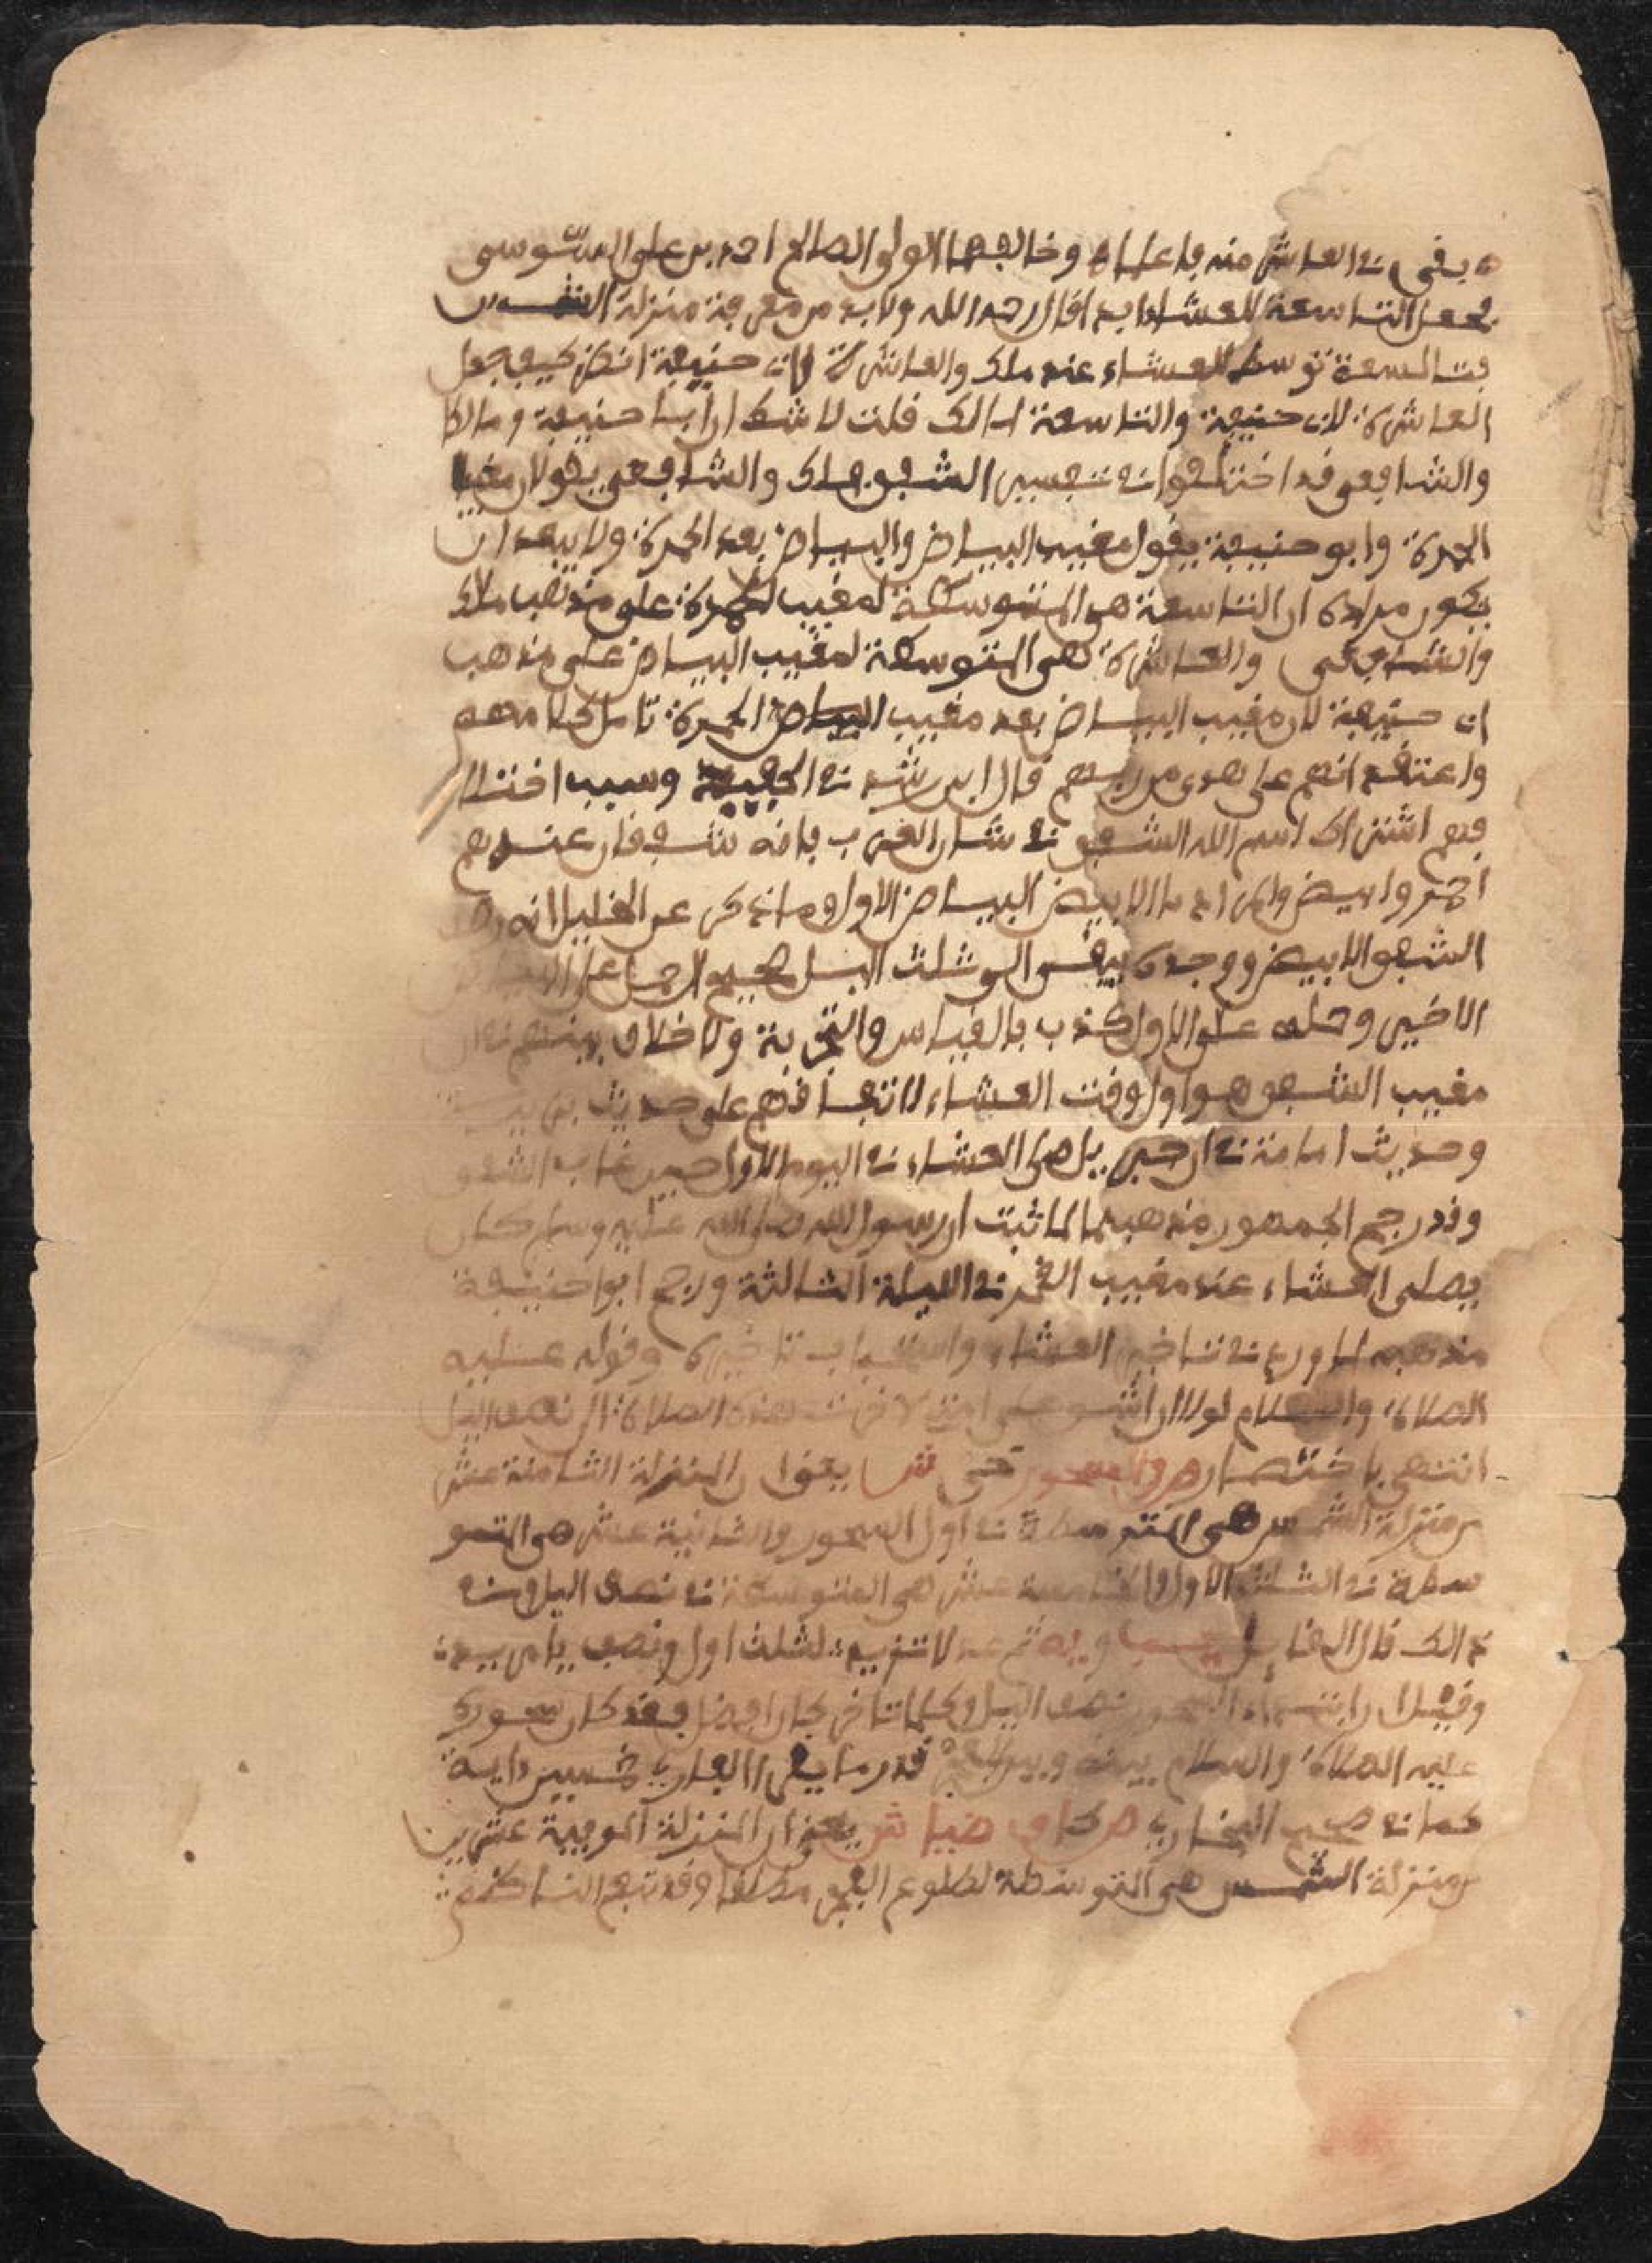 يفي في العاشر منه فاعلمه وخالفهما الولي الصالح احمد بن علي السوسي
فجعل التاسعة للعشاء ابدا قال رحمه الله ولابد من معرفة منزلة الشمس
فتالسعة توسط للعشاء عند ملك والعاشرة لابي حنيفة انظر كيف جعل
العاشرة لابي حنيفة والتاسعة لمالك قلت لا شك ان ابا حنيفة ومالكا
والشافعي قد اختلفوا في تفسير الشفق فملك والشافعي يقولان مغيب
الحمرة وابو حنيفة يقول مغيب البياض والبياض بعد الحمرة ولا يبعد ان
يكون مراده ان التاسعة هي المتوسطة لمغيب الحمرة على مذهب ملك
والشافعي والعاشرة هي المتوسطة لمغيب البياض على مذهب
ابي حنيفة لان مغيب البياض بعد مغيب البياض الحمرة تامل كلامهم
واعتقد انهم على هدى من ربهم قال ابن رشد في الحفيد وسبب اختلا
فهم اشتراك اسم الله الشفق في لسان العرب فانه شفقان عندهم
احمر وابيض والمراد بالابيض البياض الاول وما ذكر عن الخليل انه رصد
الشفق الابيض ووجده يبقى الى ثلث اليل صحيح الحمل على البياض
الاخير وحمله على الاول كذب بالقياس والتجربة ولا خلاف بينهم في ان
مغيب الشفق هو اول وقت العشاء لاتفاقهم على حديث بريدة
وحديث امامة في ان جبريل صلى العشاء في اليوم الاول حين غاب الشفق
وقد رجح الجمهور مذهبهما لما ثبت ان رسول الله صلى الله عليه وسلم كان
يصلي العشاء عند مغيب القمر في الليلة الثالثة ورجح ابوا حنيفة
مذهبه لما ورد في تاخير العشاء واستحباب تاخيره وقوله عليه
الصلاة والسلام لولا ان اشق على امتي لاخرت هذه الصلاة الى نصف اليل
انتهى باختصار ص والسحور حى ش يعني ان المنزلة الثامنة عشر
من منزلة الشمس هي المتوسطة في اول السحور والثانية عشر هي المتو
سطة في الثلث الاول والخامسة عشر هي المتوسطة في نصف اليل وفي
ذالك قال لثلث اول ونصف
وقيل ان ابتداء السحور نصف اليل وكلما تاخر كان افضل فقد كان سحوره
عليه الصلاة والسلام بينه وبين الفجر قدر ما يقرا القارئ خمسين داية
كما في صحيح البخاري ص ش يعني ان المنزلة الموفية عشرين
من منزلة الشمس هي المتوسطة لطلوع الفجر مطلقا وقد تبع الناظم